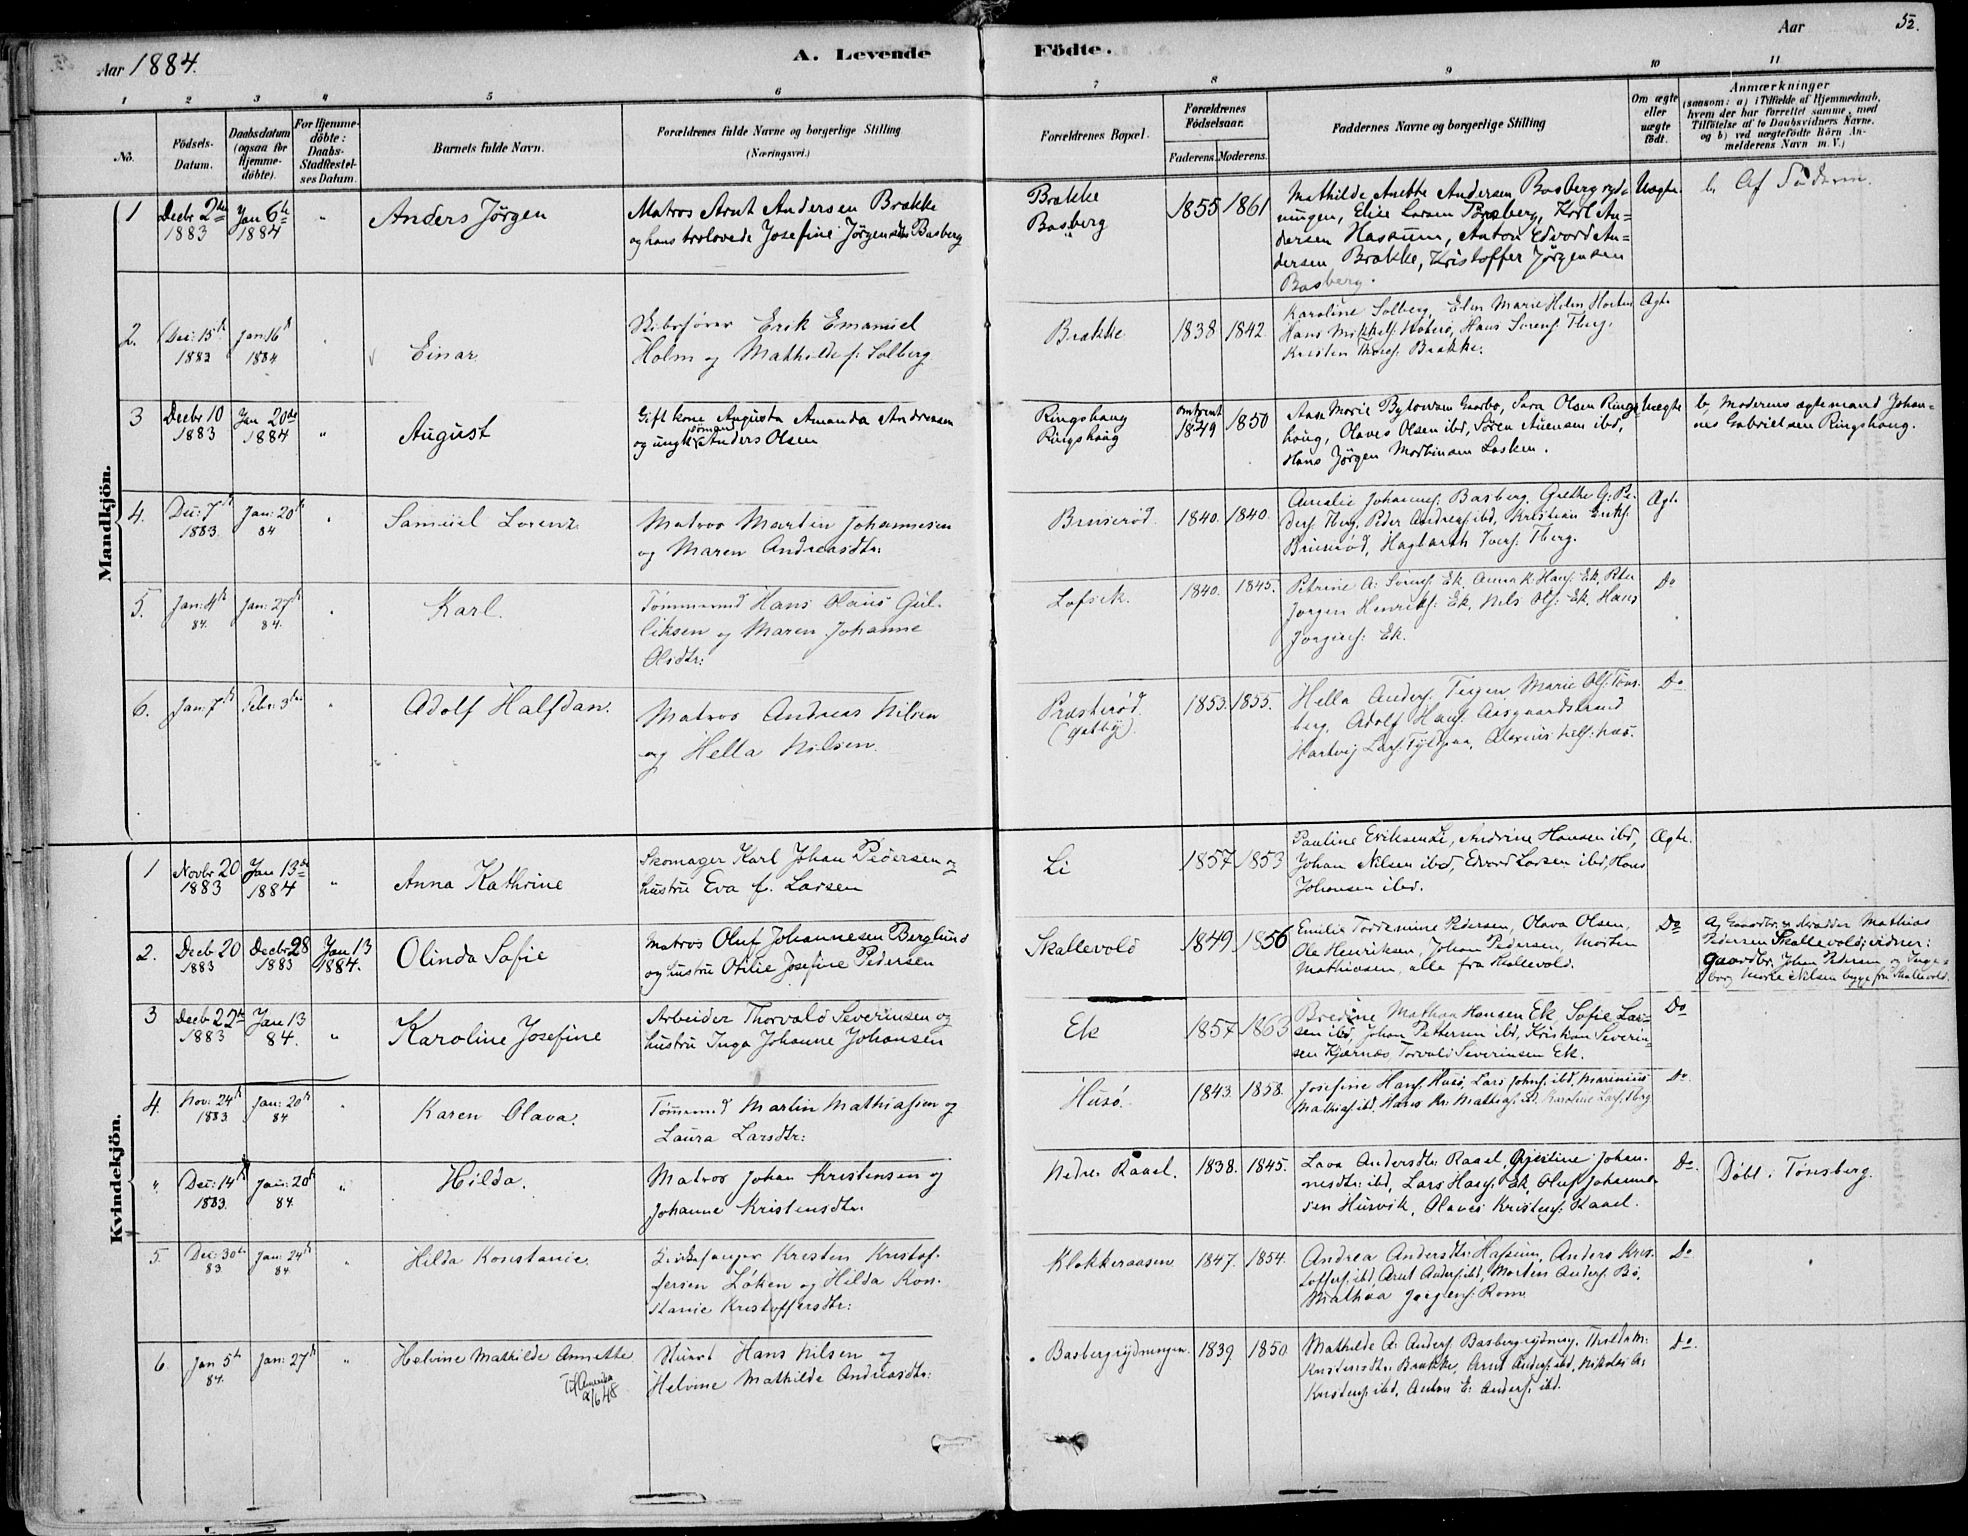 Aar 1884.
A. Levende Födte.
Aar
52.
1 2 3 4 5 6 7 8 9 10 11
No.
Födsels-Datum.
Daabsdatum (ogsaa for Hjemme-döbte).
For Hjemme-döbte: Daabs-Stadfæstel-ses Datum.
Barnets fulde Navn.
Forældrenes fulde Navne og borgerlige Stilling (Næringsvei.)
Forældrenes Bopæl.
Forældrenes Födselsaar.
Faderens. Moderens.
Faddernes Navne og borgerlige Stilling
Om ægte eller uægte födt.
Anmærkninger
(saasom: a) i Tilfælde af Hjemmedaab,
hvem der har forrettet samme, med
Tilföielse af to Daabsvidners Navne,
og b) ved uægtefödte Börn An-
melderens Navn m. V.)
Mandkjön.
1 Decbr 2den 1883 Jan 6te 1884 " Anders Jörgen
Matros Arnt Andersen Brække
og hans trolovede Josefine Jörgensdtr Basberg
Brække
Basberg
1855 1861
Mathilde Anette Andersen Basbergryd=
ningen, Elise Larsen Basberg, Karl An=
dersen Hassum, Anton Edvard An=
dersen Brække, Kristoffer Jörgensen
Basberg.
Uægte.
b. Af
2. Dec: 15de 1883 Jan: 16de 1884 Einar
Skibsförer Erik Emanuel
Holm og Mathilde f. Solberg
Brække 1838 1842.
Karoline Solberg, Elen Marie Holm, Horten
Hans Mikkels. Hans Sörens. Tberg,
Kristen Thores. Brække.
Ægte
3 Decbr 10 1883 Jan 20de 1884 " August
Gift kone Augusta Amanda Andresen
og ungk sömand Anders Olsen
Ringshaug
Ringshaug
omtrent 1849 1850
Anne Marie Gaarbo, Sara Olsen Rings
haug, Olaves Olsen ibd, Sören ibd,
Hans Jörgen Mortinsen Lasken.
Uægte
b, Moderens ægtemand Johan=
nes Gabrielsen Ringshaug.
4. Dec: 7de 1883 Jan: 20de 84 Samuel Lorenz
Matros Martin Johannesen
og Maren Andreasdtr:
Bruserød. 1840. 1840.
Amalie Johannes. Basberg, Grethe G: Pe-
ders. Tberg, Peder Andreas. ibd, Kristian Eriks.
Bruserød, Hagbarth Ivers. Tberg.
Ægt.
5. Jan: 4de 84. Jan: 27de 84. Karl.
Tömmermd Hans Olaus Gul-
liksen og Maren Johanne
Olsdtr:
Lofsek. 1840. 1845.
Petrine A: Sörens. Ek, Anna K: Hans. Ek, Peter
Jörgen Henriks: Ek, Nils Ols: Ek, Hans
Jörgens: Ek.
Do
6. Jan: 7de Febr: 3die " Adolf Halfdan.
Matros Andreas Nilsen
og Hella Nilsen.
Præsterød. 1853. 1855.
Hella Anders. Teigen, Marie Ols. Töns-
berg, Adolf Hans. Aasgaardstrand
Hartvig Lars.
Do
Kvindekjön.
1 Novbr 20 1883 Jan 13de 1884 " Anna Kathrine
Skomager Karl Johan Pedersen og
hustru Eva f. Larsen
Li 1857 1853
Pauline Eriksen Li, Andrine Hansen ibd,
Johan Nilsen ibd, Edvard Larsen ibd, Hans
Johansen ibd.
Ægte.
2. Decbr 20 1883 Decbr 28 1883 Jan 13 1884. Olinda Sofie
Matros Oluf Johannesen Berglund
og hustru Otilie Josefine Pedersen
Skallevold 1849 1856
Emilie Pedersen, Olava Olsen,
Ole Henriksen, Johan Pedersen, Morten
Mathiasen, alle fra Skallevold.
Do
a, Gaardbr. og skrædder Mathias
Pedersen Skallevold; vidner:
gaardbr. Johan Pedersen og Inge=
borg Marie Nilsen begge fra Skallevold.
3 Decbr 22de 1883 Jan 13 84. " Karoline Josefine
Arbeider Thorvald Severinsen og
hustru Inga Johanne Johansen
Ek 1857 1863
Mathea Hansen Ek, Sofie Lar=
sen ibd, Johan Pettersen ibd, Kristian Severin=
sen Kjærnæs, Torvald Severinsen Ek.
Do
4. Nov: 24de 1883 Jan: 20de 84 Karen Olava.
Tömmermd Martin Mathiassen og
Laura Larsdtr:
Husö. 1843. 1858.
Josefine Hans. Husö, Lars Johns. ibd, Marinius
Mathias. ibd, Hans Kr: Mathias. ibd. Karoline Lars. Tberg
Do.
" Dec: 14de 1883. Jan: 20de 84. " Hilda.
Matros Johan Kristensen og
Johanne Kristensdtr.
Nedre Raael. 1838. 1845.
Lava Andersdtr. Raael, Johan-
nesdtr: ibd, Lars Hans. Ek, Oluf Johanne-
sen Husvik, Olaves Kristens. Raael.
Do
Döbt i Tönsberg.
5. Dec: 30te 83 Jan: 24de 84. " Hilda Konstanie.
Kresten Kristof-
fersen Löken og Hilda Kon-
stanie Kristoffersdtr:
Klokkeraasen 1847. 1854.
Andrea Andersdtr: Hassum, Anders Kris-
toffers. ibd, Arnt Anders. ibd, Morten Anders. Bö,
Mathea Jörgens. Rom.
Do
6. Jan 5te 84. Jan: 27de " Helvine Mathilde Annette
Til Amerika
9/6 48
Stuert Hans Nilsen og
Helvine Mathilde Andreasdtr:
Basbergrydningen 1839 1850
Mathilde A: Anders. Basbergrydning,
Kristensdtr. Brække, Arnt Anders. ibd, Nikolai A:
Kristens. ibd, Anton E: Anders. ibd.
Do